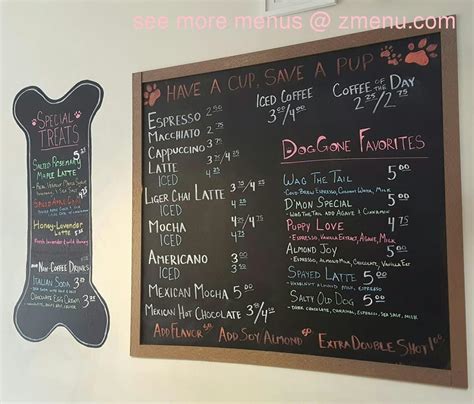 see more menus @ zmenu.com
SPECIAL
TREATS
SALTED ROSEMARY
MAPLE LATTE 5.00
HONEY-LAVENDER
LATTE 5.00
NON-COFFEE DRINKS
ITALIAN SODA 3.00
CHOCOLATE EGG CREAM 3
HAVE A CUP, SAVE A PUP
ESPRESSO 2.50
MACCHIATO 2.75
CAPPUCCINO 3.75/4.25
LATTE 3.75/4.25
ICED
LIGER CHAI LATTE 3.75/4.25
ICED
MOCHA
ICED
AMERICANO
ICED
MEXICAN MOCHA 5.00
MEXICAN HOT CHOCOLATE 3.50/4.50
ADD FLAVOR .50
ADD SOY/ALMOND
EXTRA DOUBLE SHOT 1.00
ICED COFFEE
3.00/4.00
COFFEE OF THE DAY
2.25/2.75
DOGGONE FAVORITES
WAG THE TAIL 5.00
- COLD BREW ESPRESSO, COCONUT WATER, MILK
D'MON SPECIAL 5.00
- WAG THE TAIL ADD AGAVE & CINNAMON
PUPPY LOVE 4.75
- ESPRESSO, VANILLA EXTRACT, AGAVE, MILK
ALMOND JOY 5.00
- ESPRESSO, ALMOND MILK, CHOCOLATE, VANILLA EXT
SPAYED LATTE 5.00
SALTY OLD DOG 5.00
- DARK CHOCOLATE, CARAMEL, ESPRESSO, SEA SALT, MILK